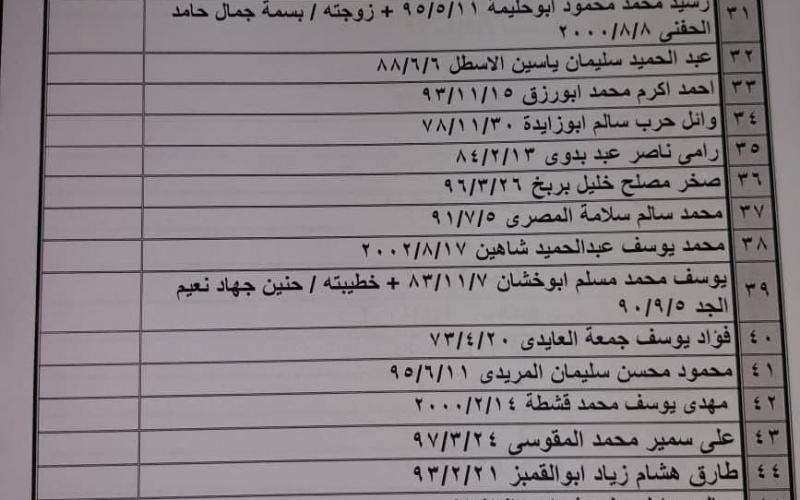 ٣١ رشيد محمد محمود ابوحليمة ٩٥/٥/١١ + زوجته / بسمة جمال حامد
الحفنى ٢٠٠٠/٨/٨
٣٢ عبد الحميد سليمان ياسين الاسطل ٨٨/٦/٦
٣٣ احمد اكرم محمد ابورزق ٩٣/١١/١٥
٣٤ وائل حرب سالم ابوزايدة ٧٨/١١/٣٠
٣٥ رامى ناصر عبد بدوى ٨٤/٢/١٣
٣٦ صخر مصلح خليل بريخ ٩٦/٣/٢٦
٣٧ محمد سالم سلامة المصرى ٩١/٧/٥
٣٨ محمد يوسف عبدالحميد شاهين ٢٠٠٢/٨/١٧
٣٩ يوسف محمد مسلم ابوخشان ٨٣/١١/٧ + خطيبته / حنين جهاد نعيم
الجد ٩٠/٩/٥
٤٠ فؤاد يوسف جمعة العايدى ٧٣/٤/٢٠
٤١ محمود محسن سليمان المريدى ٩٥/٦/١١
٤٢ مهدى يوسف محمد قشطة ٢٠٠٠/٢/١٤
٤٣ على سمير محمد المقوسى ٩٧/٣/٢٤
٤٤ طارق هشام زياد ابوالقمبز ٩٣/٢/٢١